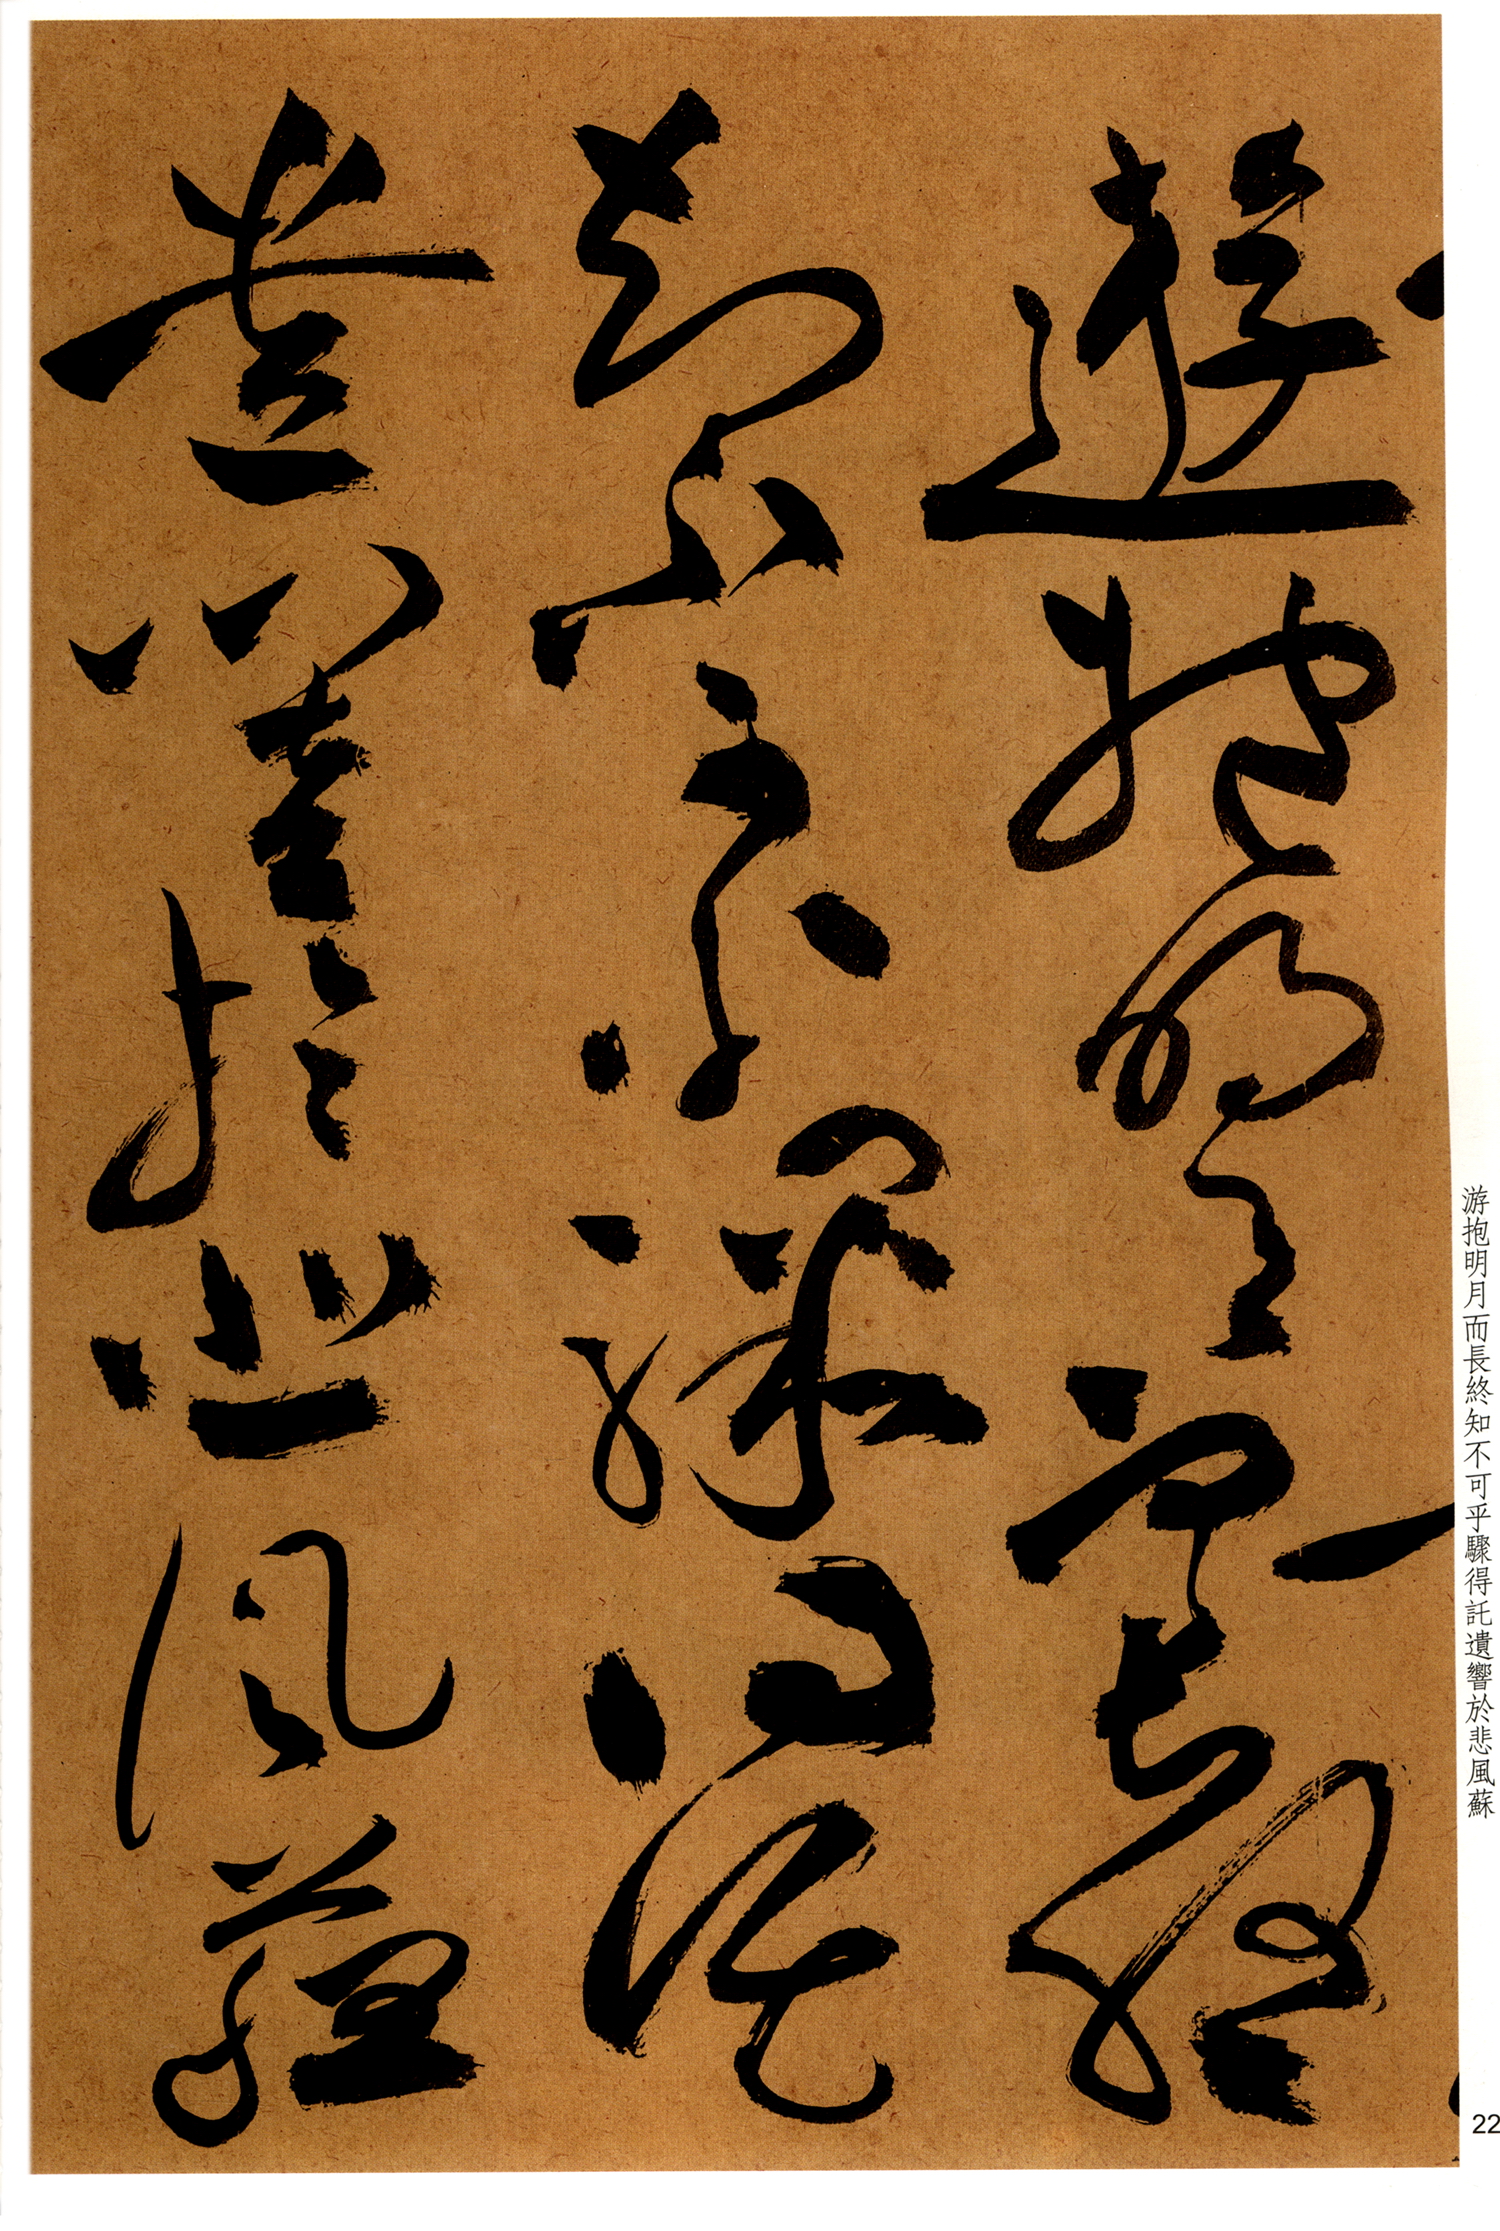 遊抱明月而長終
知不可乎驟得託
遺響於悲風蘇
游抱明月而長終知不可乎驟得託遺響於悲風蘇
22